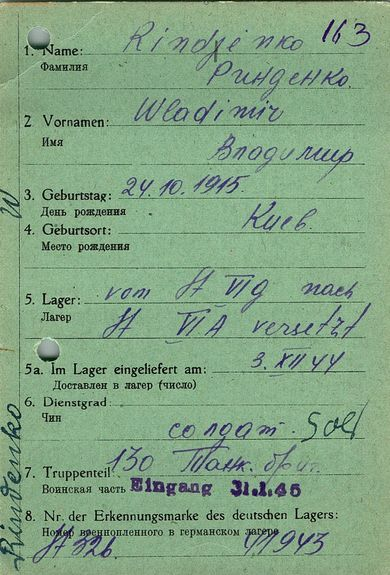 163
1. Name: Rindjenko
Фамилия Ринденко
2 Vornamen: Wladimir
Имя Владимир
3. Geburtstag: 24.10.1915.
День рождения
4. Geburtsort: Киев.
Место рождения
5. Lager: vom St VIG nach
Лагер St VIA versetzt
5a. Im Lager eingeliefert am: 3. XII 44
Доставлен в лагер (число)
6. Dienstgrad:
Чин солдат. Sold
7. Truppenteil: 130 Танк. бриг.
Воинская часть Eingang 31.1.45
8. Nr. der Erkennungsmarke des deutschen Lagers:
Номер военнопленного в германском лагере
St 326 41943
Rindenko W